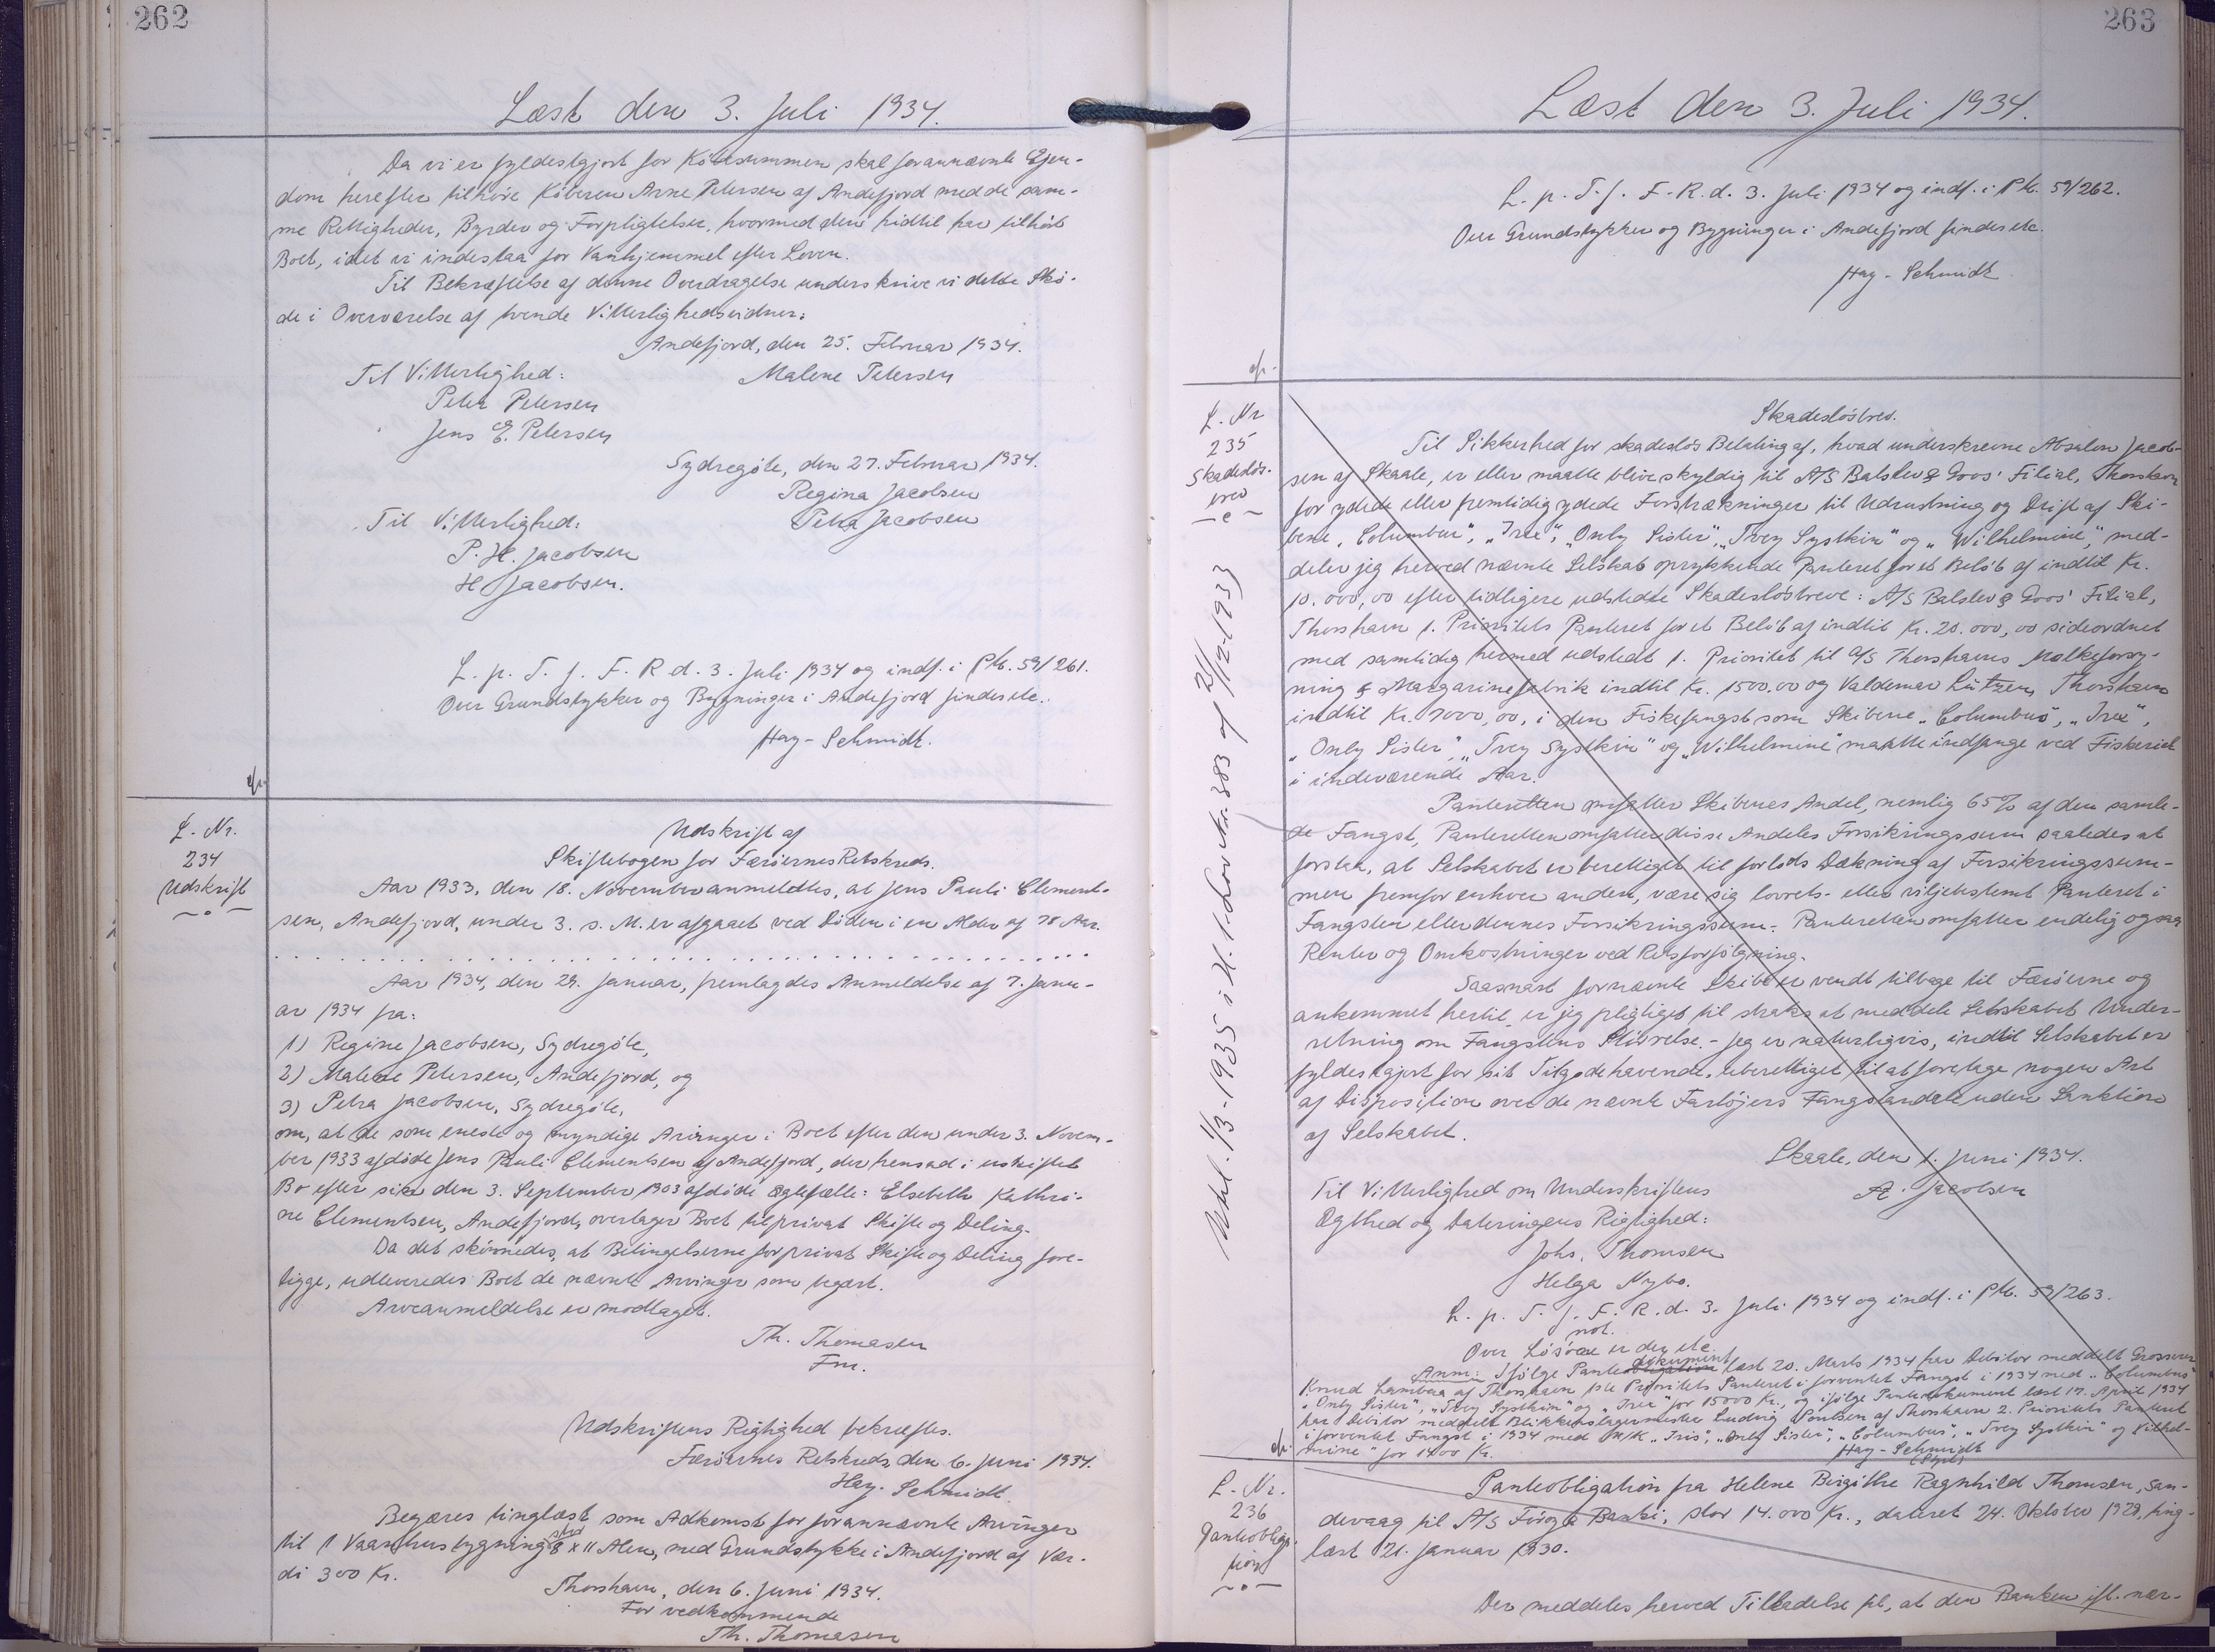 262
Læst den 3. Juli 1934.
Da vi er fyldestgjort for Købesummen skal forannævnte Ejen-
dom herefter tilhøre Køberen Arne Petersen af Andefjord med de sam-
me Rettigheder, Byrder og Forpligtelser, hvormed den hidtil har tilhørt
Boet, idet vi indestaa for Vanhjemmel efter Loven.
Til Bekræftelse af denne Overdragelse underskrive vi dette Skø-
de i Overværelse af tvende Vitterlighedsvidner:
Andefjord, den 25. Februar 1934.
Til Vitterlighed: Malene Petersen
Peter Petersen
Jens E. Petersen
Sydregöte, den 27. Februar 1934.
Regina Jacobsen
Til Vitterlighed: Petra Jacobsen
P. H. Jacobsen
H Jacobsen.
L. p. T. f. F. R d. 3. Juli 1934 og indf. i Ptb. 59/261.
Over Grundstykker og Bygninger i Andefjord findes etc.
Hay-Schmidt.
L. Nr.
234
Udskrift
Udskrift af
Skiftebogen for Færøernes Retskreds.
Aar 1933, den 18. November anmeldtes, at Jens Pauli Clement-
sen, Andefjord, under 3. s. M. er afgaaet ved Døden i en Alder af 78 Aar.
. . . . . . . . . . . . . . . . . . . . . . . . . . . . . .
Aar 1934, den 29. Januar, fremlagdes Anmeldelse af 7. Janu-
ar 1934 fra:
1) Regine Jacobsen, Sydregöte,
2) Malene Petersen, Andefjord, og
3) Petra Jacobsen, Sydregöte,
om, at de som eneste og myndige Arvinger i Boet efter den under 3. Novem-
ber 1933 afdøde Jens Pauli Clementsen af Andefjord, der hensad i uskiftet
Bo efter sin den 3. September 1903 afdøde Ægtefælle: Elsebeth Kathri-
ne Clementsen, Andefjord, overtager Boet til privat Skifte og Deling.
Da det skønnedes, at Betingelserne for privat Skifte og Deling fore-
ligge, udleveredes Boet de nævnte Arvinger som begært.
Arveanmeldelse er modtaget.
Th. Thomasen
Fm.
Udskriftens Rigtighed bekræftes.
Færøernes Retskreds, den 6. Juni 1934.
Hay-Schmidt.
Begæres tinglæst som Adkomst for forannævnte Arvinger
til 1 Vaaanhusbygning stor 8 x 11 Alen, med Grundstykke i Andefjord af Vær-
di 300 Kr.
Thorshavn, den 6. Juni 1934.
For vedkommende
Th. Thomasen
263
Læst den 3. Juli 1934.
L. p. T. f. F. R. d. 3. Juli 1934 og indf. i Ptb. 59/262.
Over Grundstykker og Bygninger i Andefjord findes etc.
Hay-Schmidt
L. Nr
235
Skadesløs-
brev
Udsl. 1/3-1935 i H. t. Lov Nr. 383 af 21/12-1933
Skadesløsbrev.
Til Sikkerhed for skadesløs Betaling af, hvad underskrevne Absalon Jacob-
sen af Skaale, er eller maatte blive skyldig til A/S Balslev & Goos' Filial, Thorshavn
for ydede eller fremtidig ydede Forstrækninger til Udrustning og Drift af Ski-
bene „Columbus“, „Irex“, „Only Sister“, „Trey Systkin“ og „Wilhelmine“, med-
deler jeg herved nævnte Selskab oprykkende Panteret for et Beløb af indtil Kr.
10.000,00 efter tidligere udstedte Skadesløsbreve: A/S Balslev & Goos' Filial,
Thorshavn 1. Prioritets Panteret for et Beløb af indtil Kr. 20.000,00 sideordnet
med samtidig hermed udstedt 1. Prioritet til A/S Thorshavns Mælkeforsy-
ning & Margarinefabrik indtil Kr. 1500.00 og Valdemar Lützen, Thorshavn
indtil Kr. 7000,00, i den Fiskefangst som Skibene „Columbus“, „Irex“,
„Only Sister“, „Trey Systkin“ og „Wilhelmine“ maatte indfange ved Fiskeriet
i indeværende Aar.
Panteretten omfatter Skibenes Andel, nemlig 65% af den samle-
de Fangst, Panteretten omfatter disse Andeles Forsikringssum saaledes at
forstaa, at Selskabet er berettiget til forlods Dækning af Forsikringssum-
men fremfor enhver anden, være sig lovbets- eller viljebestemt Panteret i
Fangsten eller dennes Forsikringssum. Panteretten omfatter endelig ogsaa
Renter og Omkostninger ved Retsforfølgning.
Saasnart fornævnte Skibe er vendt tilbage til Færøerne og
ankommet hertil, er jeg pligtiget til straks at meddele Selskabet Under-
retning om Fangstens Størrelse. - Jeg er naturligvis, indtil Selskabet er
fyldestgjort for sit Tilgodehavende, uberettiget til at foretage nogen Art
af Disposition over de nævnte Fartøjers Fangstandele uden Sanktion
af Selskabet.
Skaale, den 1. Juni 1934.
Til Vitterlighed om Underskriftens A. Jacobsen
Ægthed og Dateringens Rigtighed:
Johs. Thomsen
Helga Nybo.
L. p. T. f. F. R. d. 3. Juli 1934 og indf. i Ptb. 59/263.
not.
Over Løsøre er der etc.
Anm: Ifølge Pantedokument læst 20. Marts 1934 har Debitor meddelt Grosserer
Knud Lambaa af Thorshavn Prioritets Panteret i forventet Fangst i 1934 med „Columbus“
„Only Sister“, „Trey Systkin“ og „Irex“ for 15000 Kr., og ifølge Pantedokument læst 17. April 1934
har Debitor meddelt Blikkenslagermester Ludvig Poulsen af Thorshavn 2. Prioritets Panteret
i forventet Fangst i 1934 med M/K „Iris“, „Only Sister“, „Columbus“, „Trey Systkin“ og Vilhel-
mine“ for 1400 Kr. Hay-Schmidt
L. Nr.
236
Panteobliga-
tion
Panteobligation fra Helene Birgithe Ragnhild Thomsen, San-
devaag til A/S Föroya Banki, stor 14.000 Kr., dateret 24. Oktober 1929, ting-
læst 21. Januar 1930.
Der meddeles herved Tilladelse til, at den Banken ifl. nær-